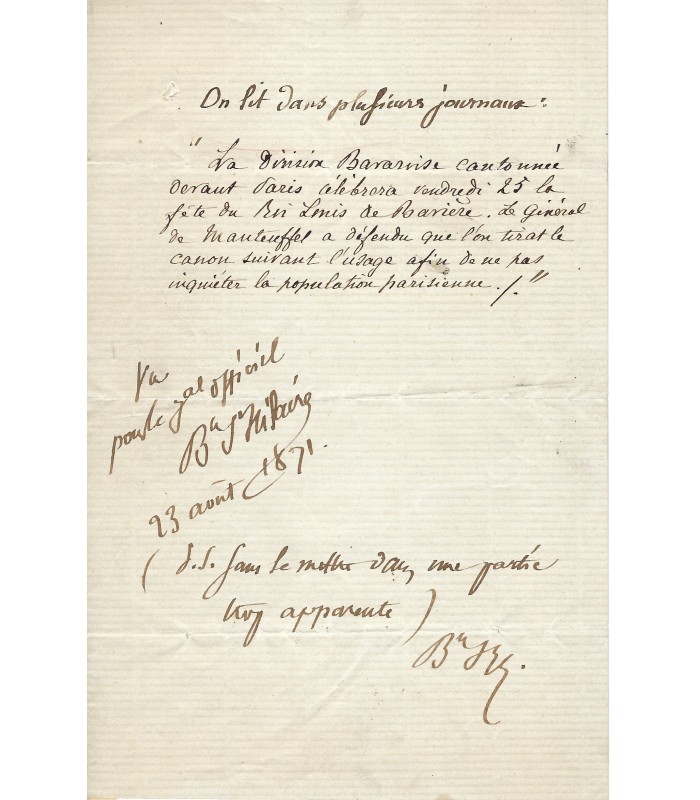 On lit dans plusieurs journaux :
"La Division Bavaroise cantonnée
devant Paris célèbrera vendredi 25 la
fête du Roi Louis de Bavière. Le Général
de Manteuffel a défendu que l'on tirat le
canon suivant l'usage afin de ne pas
inquiéter la population parisienne./."
Vu
pour le Jal officiel
By St Hilaire
23 août 1871.
( P.S. sans le mettre dans une partie
trop apparente )